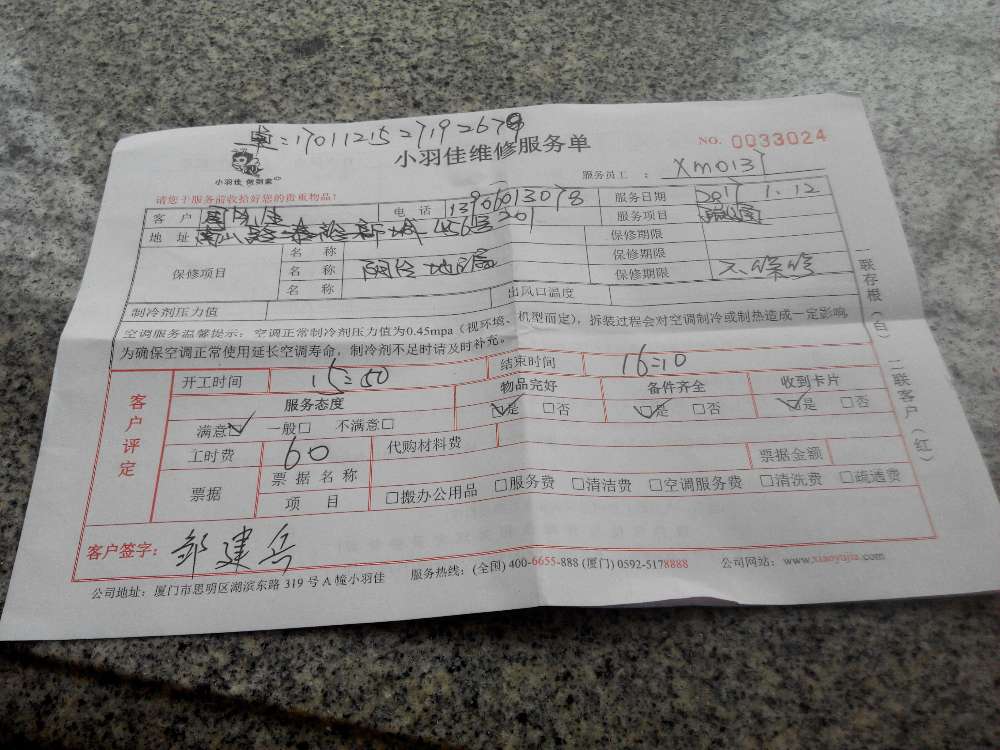 单:1701121527192679
小羽佳维修服务单
NO. 0033024
小羽佳 做到家
服务员工 : Xm0137
请您于服务前收拾好您的贵重物品!
客 户 电 话 13906013078 服务日期 2017 1.12
地 址 456号201 服务项目
保修项目 名 称 保修期限
名 称 阳台地漏 保修期限
名 称 保修期限 不保修
制冷剂压力值 出风口温度
空调服务温馨提示:空调正常制冷剂压力值为0.45mpa(视环境、机型而定),拆装过程会对空调制冷或制热造成一定影响
为确保空调正常使用延长空调寿命,制冷剂不足时请及时补充。
客户评定
开工时间 15:50 结束时间 16:10
服务态度 物品完好 备件齐全 收到卡片
满意☑ 一般□ 不满意□ ☑是 □否 ☑是 □否 ☑是 □否
工时费 60 代购材料费 票据金额
票据 票 据 名 称
项 目 □搬办公用品 □服务费 □清洁费 □空调服务费 □清洗费 □疏通费
客户签字: 邹建兵
公司地址:厦门市思明区湖滨东路 319 号 A 幢小羽佳 服务热线:(全国) 400-6655-888 (厦门) 0592-5178888 公司网站:www.xiaoyujia.com
一联存根(白) 二联客户(红)